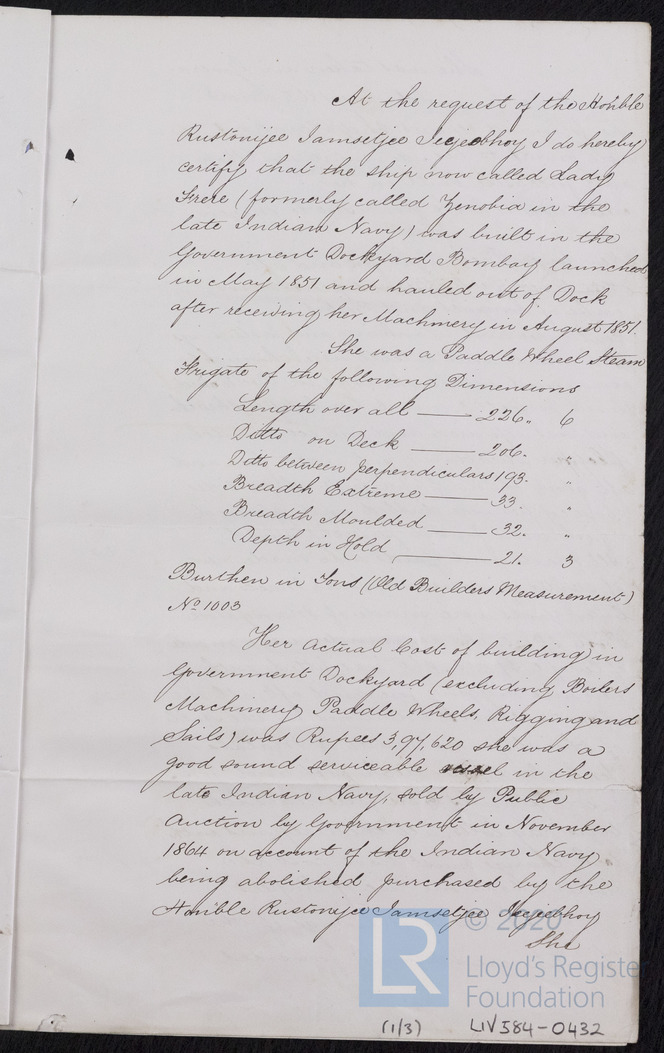 At the request of the Honble
Rustomjee Jamsetjee Jejeebhoy I do hereby
certify that the ship now called Lady
Frere (formerly called Zenobia in the
late Indian Navy) was built in the
Government Dockyard Bombay launched
in May 1851 and hauled out of Dock
after receiving her Machinery in August 1851.
She was a Paddle Wheel Steam
Frigate of the following Dimensions
Length over all — 226 „ 6
Ditto on Deck — 206 . „
Ditto between perpendiculars 193 . „
Breadth Extreme — 33 . „
Breadth Moulded — 32 . „
Depth in Hold — 21 . 3
Burthen in Tons (Old Builders Measurement)
No 1003
Her actual Cost of building in
Government Dockyard (excluding Boilers
Machinery Paddle Wheels, Rigging and
Sails) was Rupees 3,97,620 she was a
good sound serviceable vessel in the
late Indian Navy, sold by Public
Auction by Government in November
1864 on account of the Indian Navy
being abolished purchased by the
Honble Rustomjee Jamsetjee Jejeebhoy
She
© 2020
LR
Lloyd's Register
Foundation
(1/3) LIV584-0432